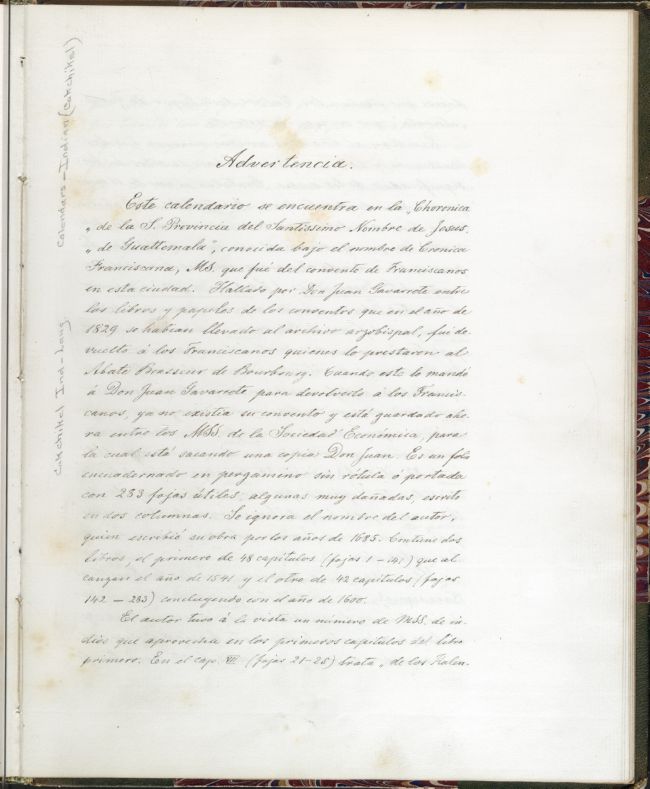 Calendars - Indian (Cakchikel)
Cakchikel Ind - Lang
Advertencia.
Este calendario se encuentra en la „Choronica
„ de la S. Provincia del Santissimo Nombre de Jesus,
„ de Guattemala", conocida bajo el nombre de Cronica
Franciscana, MS. que fué del convento de Franciscanos
en esta ciudad. Hallado por Don Juan Gavarrete entre
los libros y papeles de los conventos que en el año de
1829 se habian llevado al archivo arzobispal, fué de-
vuelto á los Franciscanos quienes lo prestaron al
Abate Brasseur de Bourbourg. Cuando este lo mandó
á Don Juan Gavarrete para devolverlo á los Francis-
canos, ya no existia su convento y está guardado aho-
ra entre los MSS. de la Sociedad Económica, para
la cual está sacando una copia Don Juan. Es un folio
encuadernado en pergamino sin rótula ó portada
con 283 fojas útiles, algunas muy dañadas, escrito
en dos columnas. Se ignora el nombre del autor,
quien escribió su obra por los años de 1685. Contiene dos
libros, el primero de 48 capítulos (fojas 1 - 141) que al-
canzan el año de 1541 y el otro de 42 capítulos (fojas
142 - 283) concluyendo con el año de 1600.
El autor tuvo á la vista un número de MSS. de in-
dios que aprovecha en los primeros capítulos del libro
primero. En el cap. VII (fojas 21-25) trata „ de los Kalen-